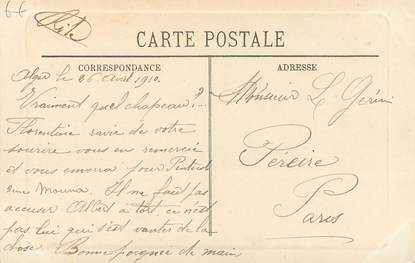 6€
CARTE POSTALE
CORRESPONDANCE
ADRESSE
Alger le 26 Avril 1910.
Vraiment quel chapeau?..
Florentine ravie de votre
sourire vous en remercie
et vous enverra pour
une Il ne faut pas
accuser Albert à tort, ce n'est
pas lui qui s'est vanté de la
chose Bonne poignée de main
Monsieur L. Gérin
Pereire
Paris